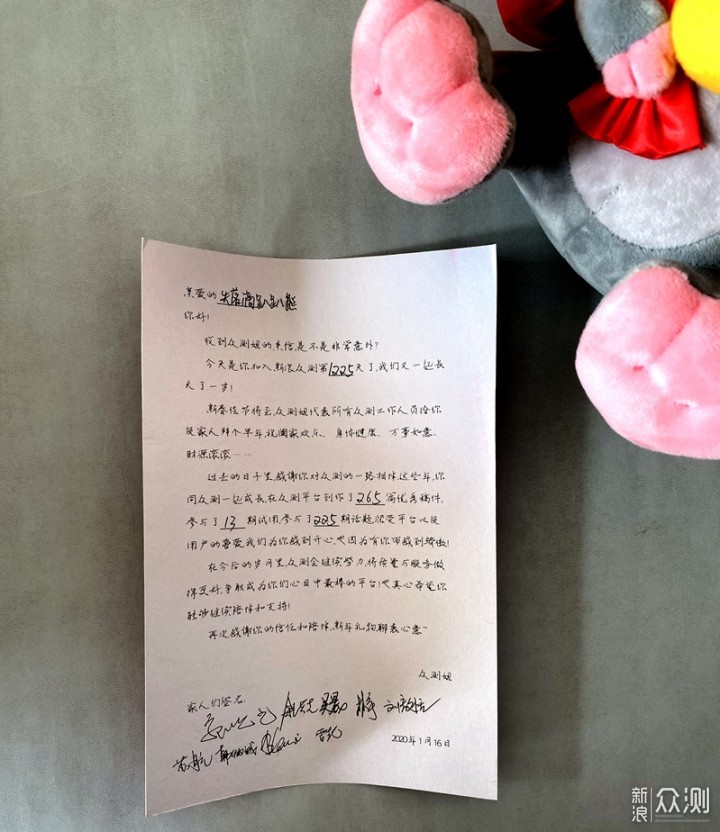 亲爱的失落滴趴趴熊
你好!
收到众测妞的来信,是不是非常意外?
今天是你加入新浪众测第1225天了,我们又一起长
大了一步!
新春佳节将至,众测妞代表所有众测工作人员给你
及家人拜个早年,祝阖家欢乐、身体健康、万事如意、
财源滚滚……
过去的日子里,感谢你对众测的一路相伴,这些年,你
同众测一起成长,在众测平台创作了265篇优秀稿件,
参与了13期试用,参与了225期话题,很受平台以及
用户的喜爱,我们为你感到开心,也因为有你而感到骄傲!
在今后的岁月里,众测会继续努力,将质量与服务做
得更好,争取成为你们心目中最棒的平台!也真心希望你
能够继续陪伴和支持!
再次感谢你的信任和陪伴,新年礼物聊表心意~
众测妞
家人们签名:
2020年1月16日
新浪 众测